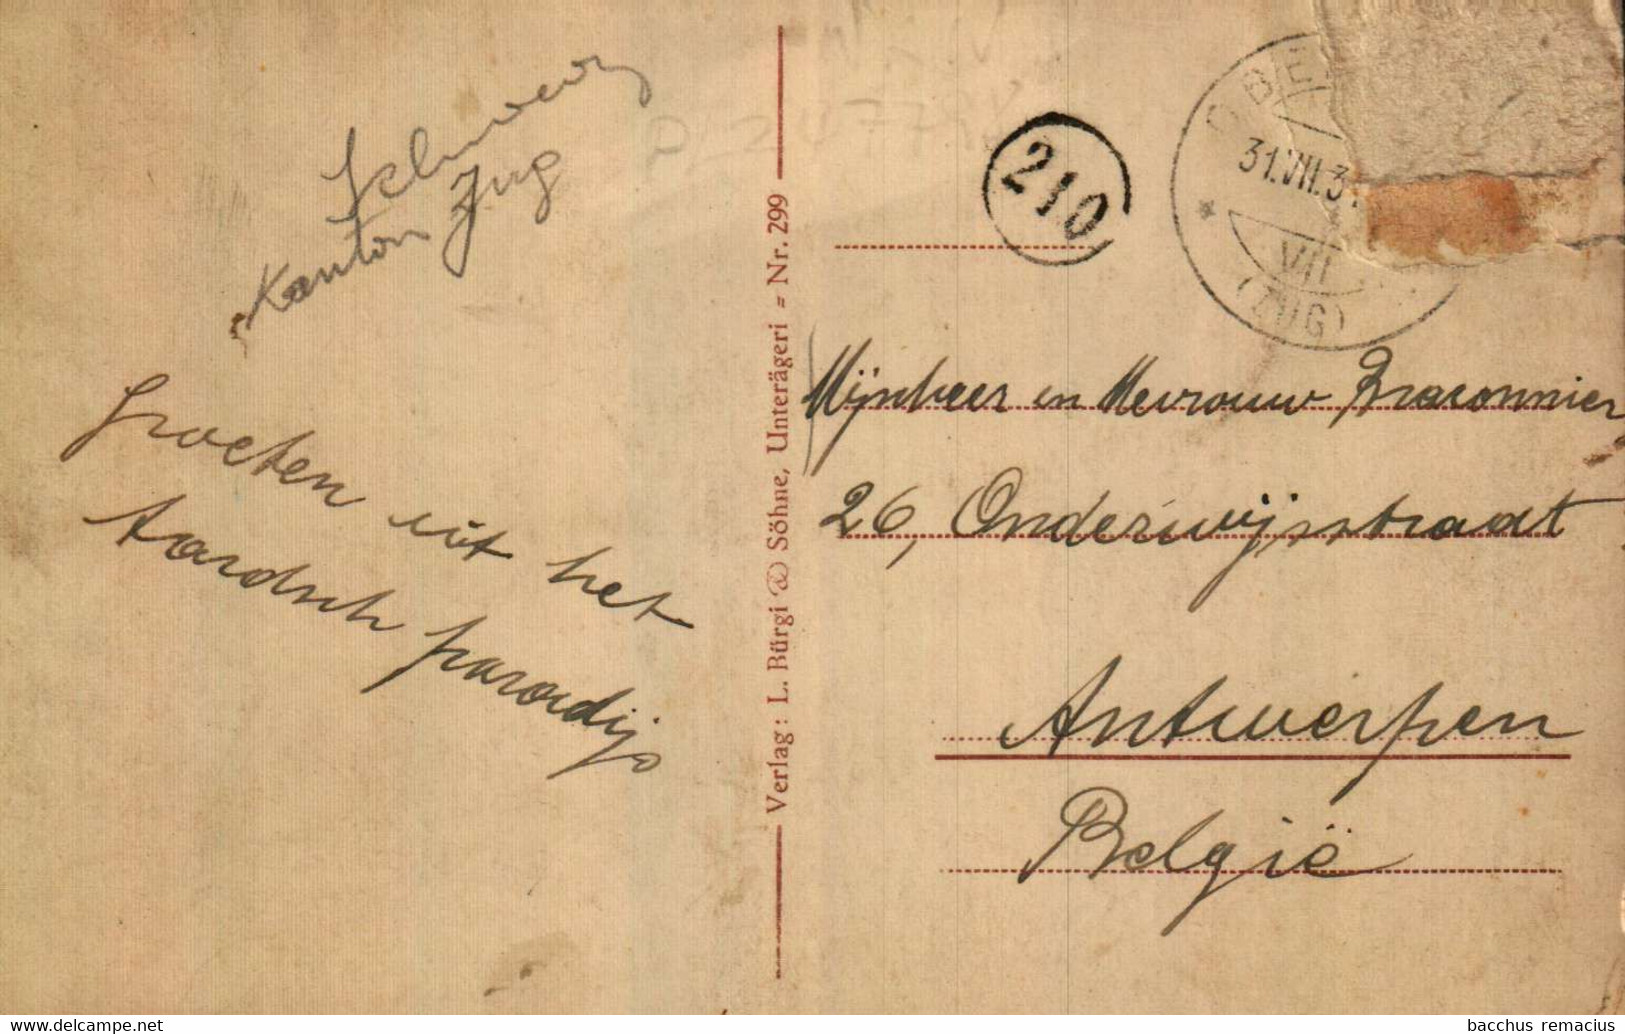 Schweiz
Kanton Zug
Groeten uit het
aardsch paradijs
Verlag: L. Bürgi & Söhne, Unterägeri = Nr. 299
210
OBE
31.VII.3
VII
(ZUG)
Mijnheer en Mevrouw Braconnier
26, Onderwijsstraat
Antwerpen
België
www.delcampe.net
bacchus remacius